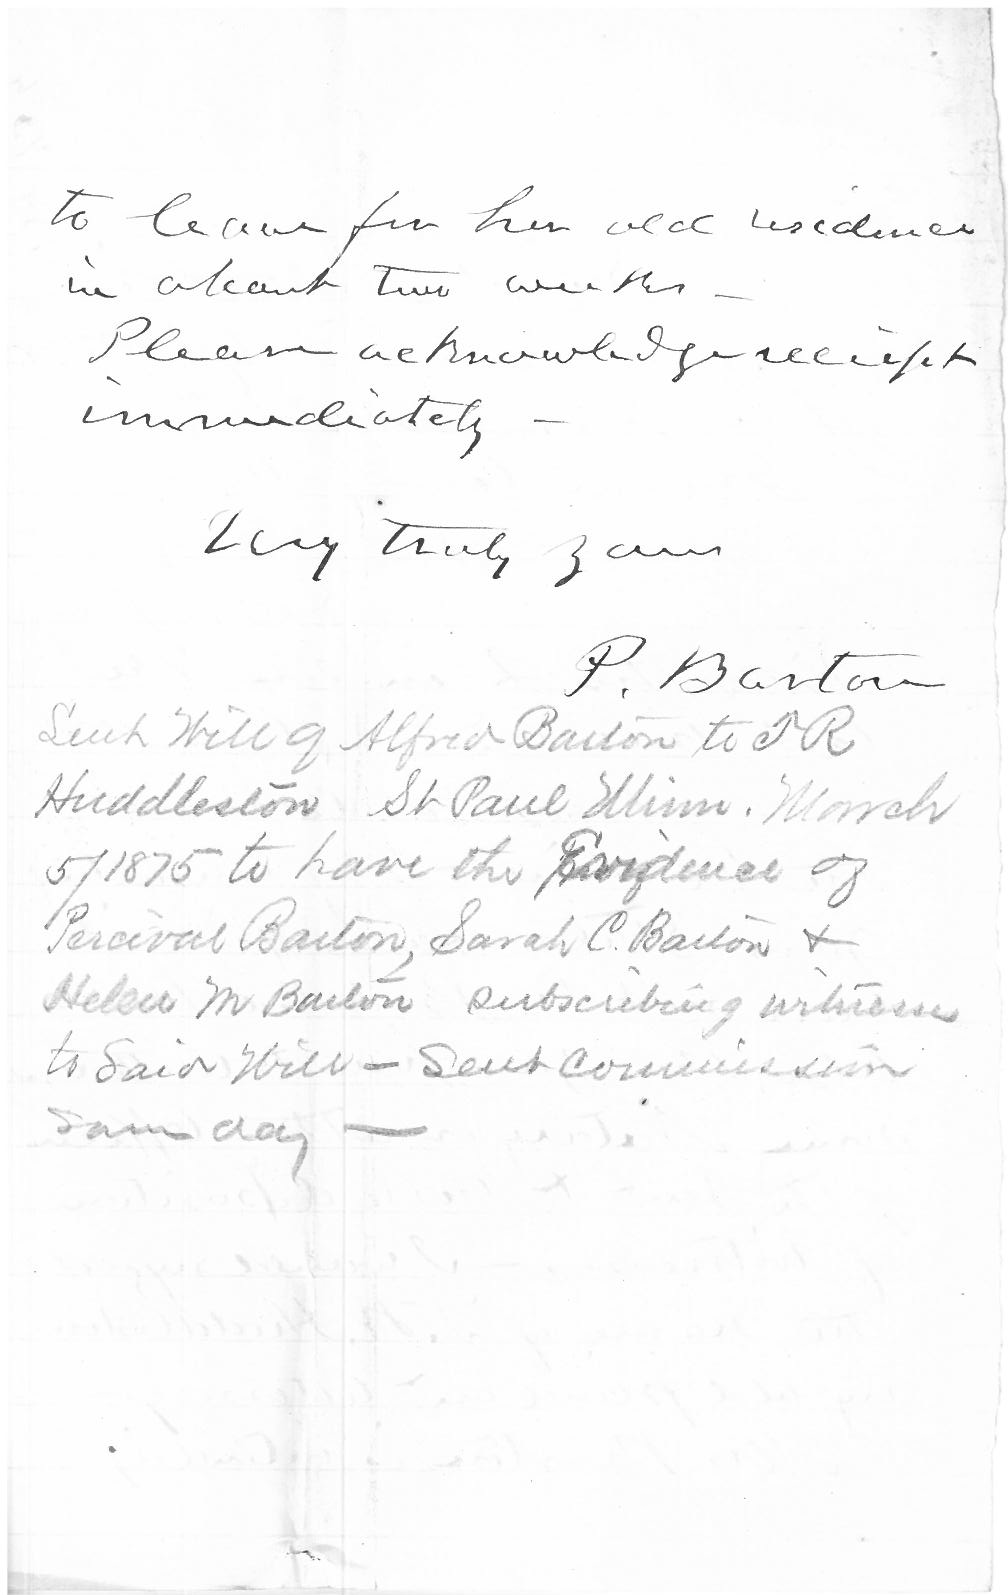 to leave for her old residence
in about two weeks –
Please acknowledge receipt
immediately –
Very truly yours
P. Barton
Sent Will of Alfred Barton to R
Huddleston St Paul Minn. March
5/1875 to have the Evidence of
Percival Barton, Sarah C. Barton &
Helen M Barton subscribing witness
to Said Will – Sent Commission
Same day —